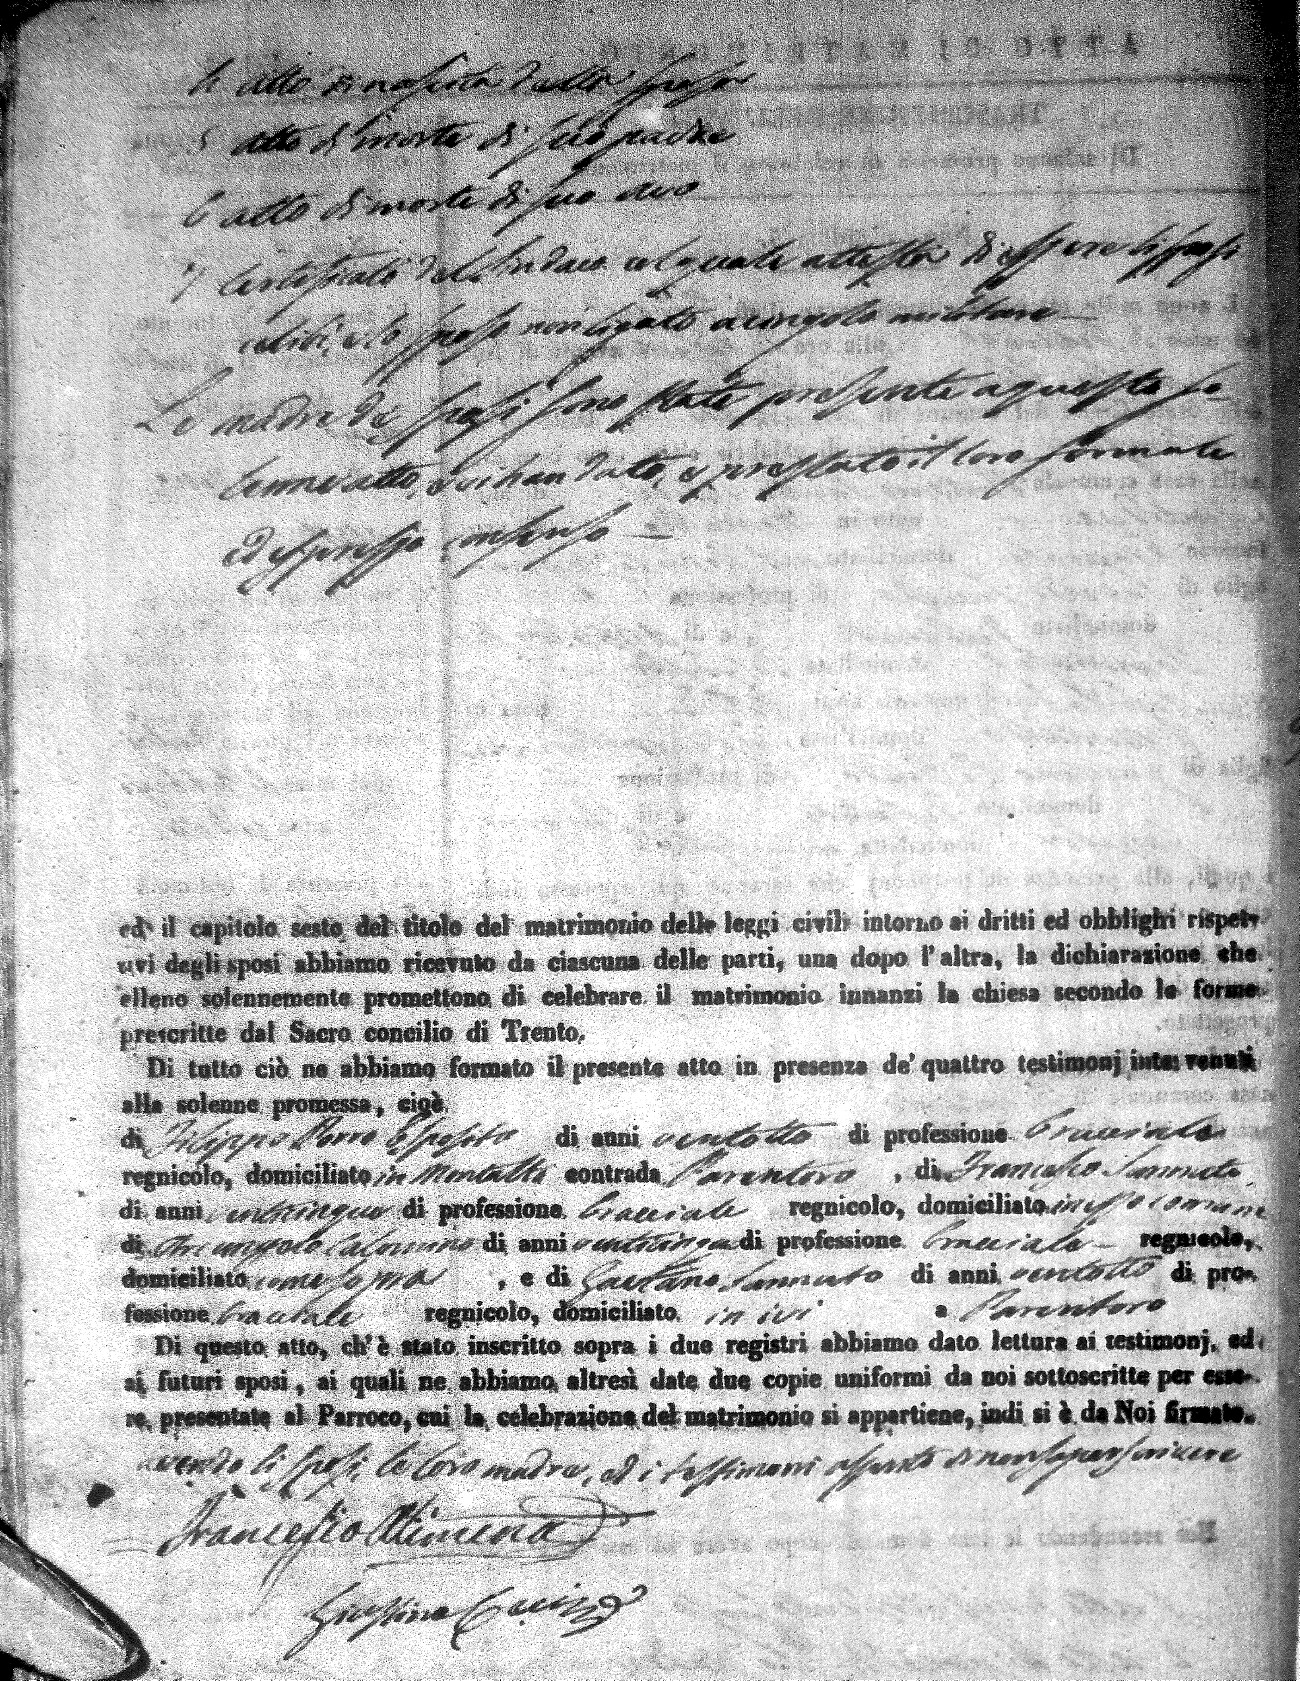 4 atto di nascita della sposa
5 atto di morte di suo padre
6 atto di morte di suo avo
7 Certificato del Sindaco col quale attesta di essere li sposi
celibi, e lo sposo non ligato a cingolo militare
Le madre de sposi sono state presente a questo so-
lenne atto, e vi han dato, e prestato il loro formale
ed espresso consenso
ed il capitolo sesto del titolo del matrimonio delle leggi civili intorno ai dritti ed obblighi rispet-
tivi degli sposi abbiamo ricevuto da ciascuna delle parti, una dopo l'altra, la dichiarazione che
elleno solennemente promettono di celebrare il matrimonio innanzi la chiesa secondo le forme
prescritte dal Sacro concilio di Trento.
Di tutto ciò ne abbiamo formato il presente atto in presenza de' quattro testimonj intervenuti
alla solenne promessa, cioè
di Filippo Esposito di anni ventotto di professione Bracciale
regnicolo, domiciliato in Montalto contrada Parentoro , di Francesco Sannuto
di anni venticinque di professione Bracciale regnicolo, domiciliato in esso comune
di Arcangelo Calomino di anni venticinque di professione bracciale regnicolo,
domiciliato come sopra , e di Gaetano Sannuto di anni ventotto di pro-
fessione bracciale regnicolo, domiciliato in ivi a Parentoro
Di questo atto, ch'è stato inscritto sopra i due registri abbiamo dato lettura ai testimonj, ed
ai futuri sposi, ai quali ne abbiamo altresì date due copie uniformi da noi sottoscritte per esse-
re presentate al Parroco, cui la celebrazione del matrimonio si appartiene, indi si è da Noi firmato.
avendo li sposi, le loro madre, ed i testimoni asserito di non saper scrivere
Francesco Alimena